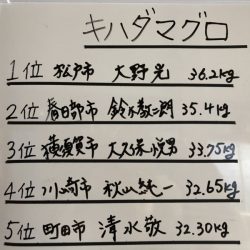 キハダマグロ
1位 松戸市 大野光 36.2kg
2位 春日部市 鈴木 35.4kg
3位 横須賀市 大久保悦男 33.75kg
4位 川崎市 秋山純一 32.65kg
5位 町田市 清水敬 32.30kg